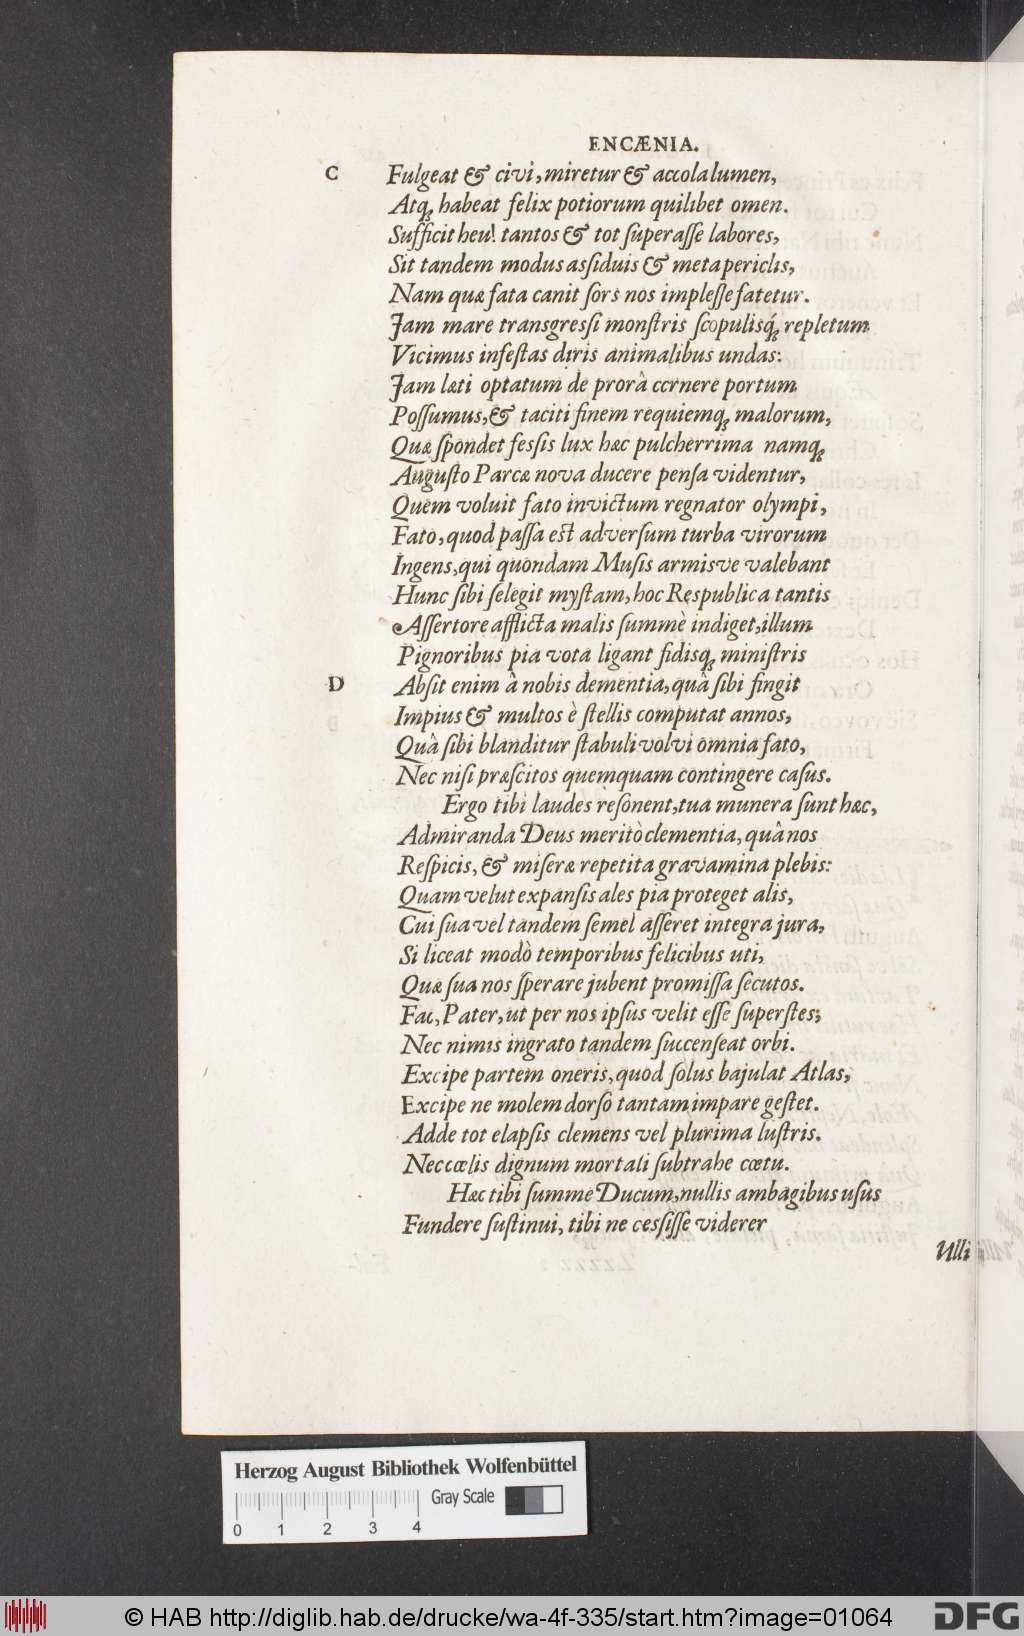 ENCÆNIA.
C Fulgeat & civi, miretur & accola lumen,
Atq́ꝫ habeat felix potiorum quilibet omen.
Sufficit heu! tantos & tot ſuperaſſe labores,
Sit tandem modus asſiduis & meta periclis,
Nam quæ fata canit ſors nos impleſſe fatetur.
Jam mare transgresſi monſtris ſcopulisq́ꝫ repletum
Vicimus infeſtas diris animalibus undas:
Jam læti optatum de prorâ cernere portum
Poſſumus, & taciti finem requiemqꝫ malorum,
Quæ ſpondet fesſis lux hæc pulcherrima namqꝫ
Auguſto Parcæ nova ducere penſa videntur,
Quem voluit fato invictum regnator olympi,
Fato, quod paſſa eſt adverſum turba virorum
Ingens, qui quondam Muſis armisve valebant
Hunc ſibi ſelegit myſtam, hoc Respublica tantis
Aſſertore afflicta malis ſummè indiget, illum
Pignoribus pia vota ligant fidisqꝫ miniſtris
D Abſit enim â nobis dementia, quâ ſibi fingit
Impius & multos è ſtellis computat annos,
Quâ ſibi blanditur ſtabuli volvi omnia fato,
Nec niſi præſcitos quemquam contingere caſus.
Ergo tibi laudes reſonent, tua munera ſunt hæc,
Admiranda Deus meritò clementia, quâ nos
Reſpicis, & miſeræ repetita gravamina plebis:
Quam velut expanſis ales pia proteget alis,
Cui ſua vel tandem ſemel aſſeret integra jura,
Si liceat modò temporibus felicibus uti,
Quæ ſua nos ſperare jubent promiſſa ſecutos.
Fac, Pater, ut per nos ipſus velit eſſe ſuperſtes;
Nec nimis ingrato tandem ſuccenſeat orbi.
Excipe partem oneris, quod ſolus bajulat Atlas,
Excipe ne molem dorſo tantam impare geſtet.
Adde tot elapſis clemens vel plurima luſtris.
Nec cœlis dignum mortali ſubtrahe cœtu.
Hæc tibi ſumme Ducum, nullis ambagibus uſus
Fundere ſuſtinui, tibi ne cesſiſſe viderer
Ulli
Herzog August Bibliothek Wolfenbüttel
Gray Scale
0 1 2 3 4
© HAB http://diglib.hab.de/drucke/wa-4f-335/start.htm?image=01064
DFG